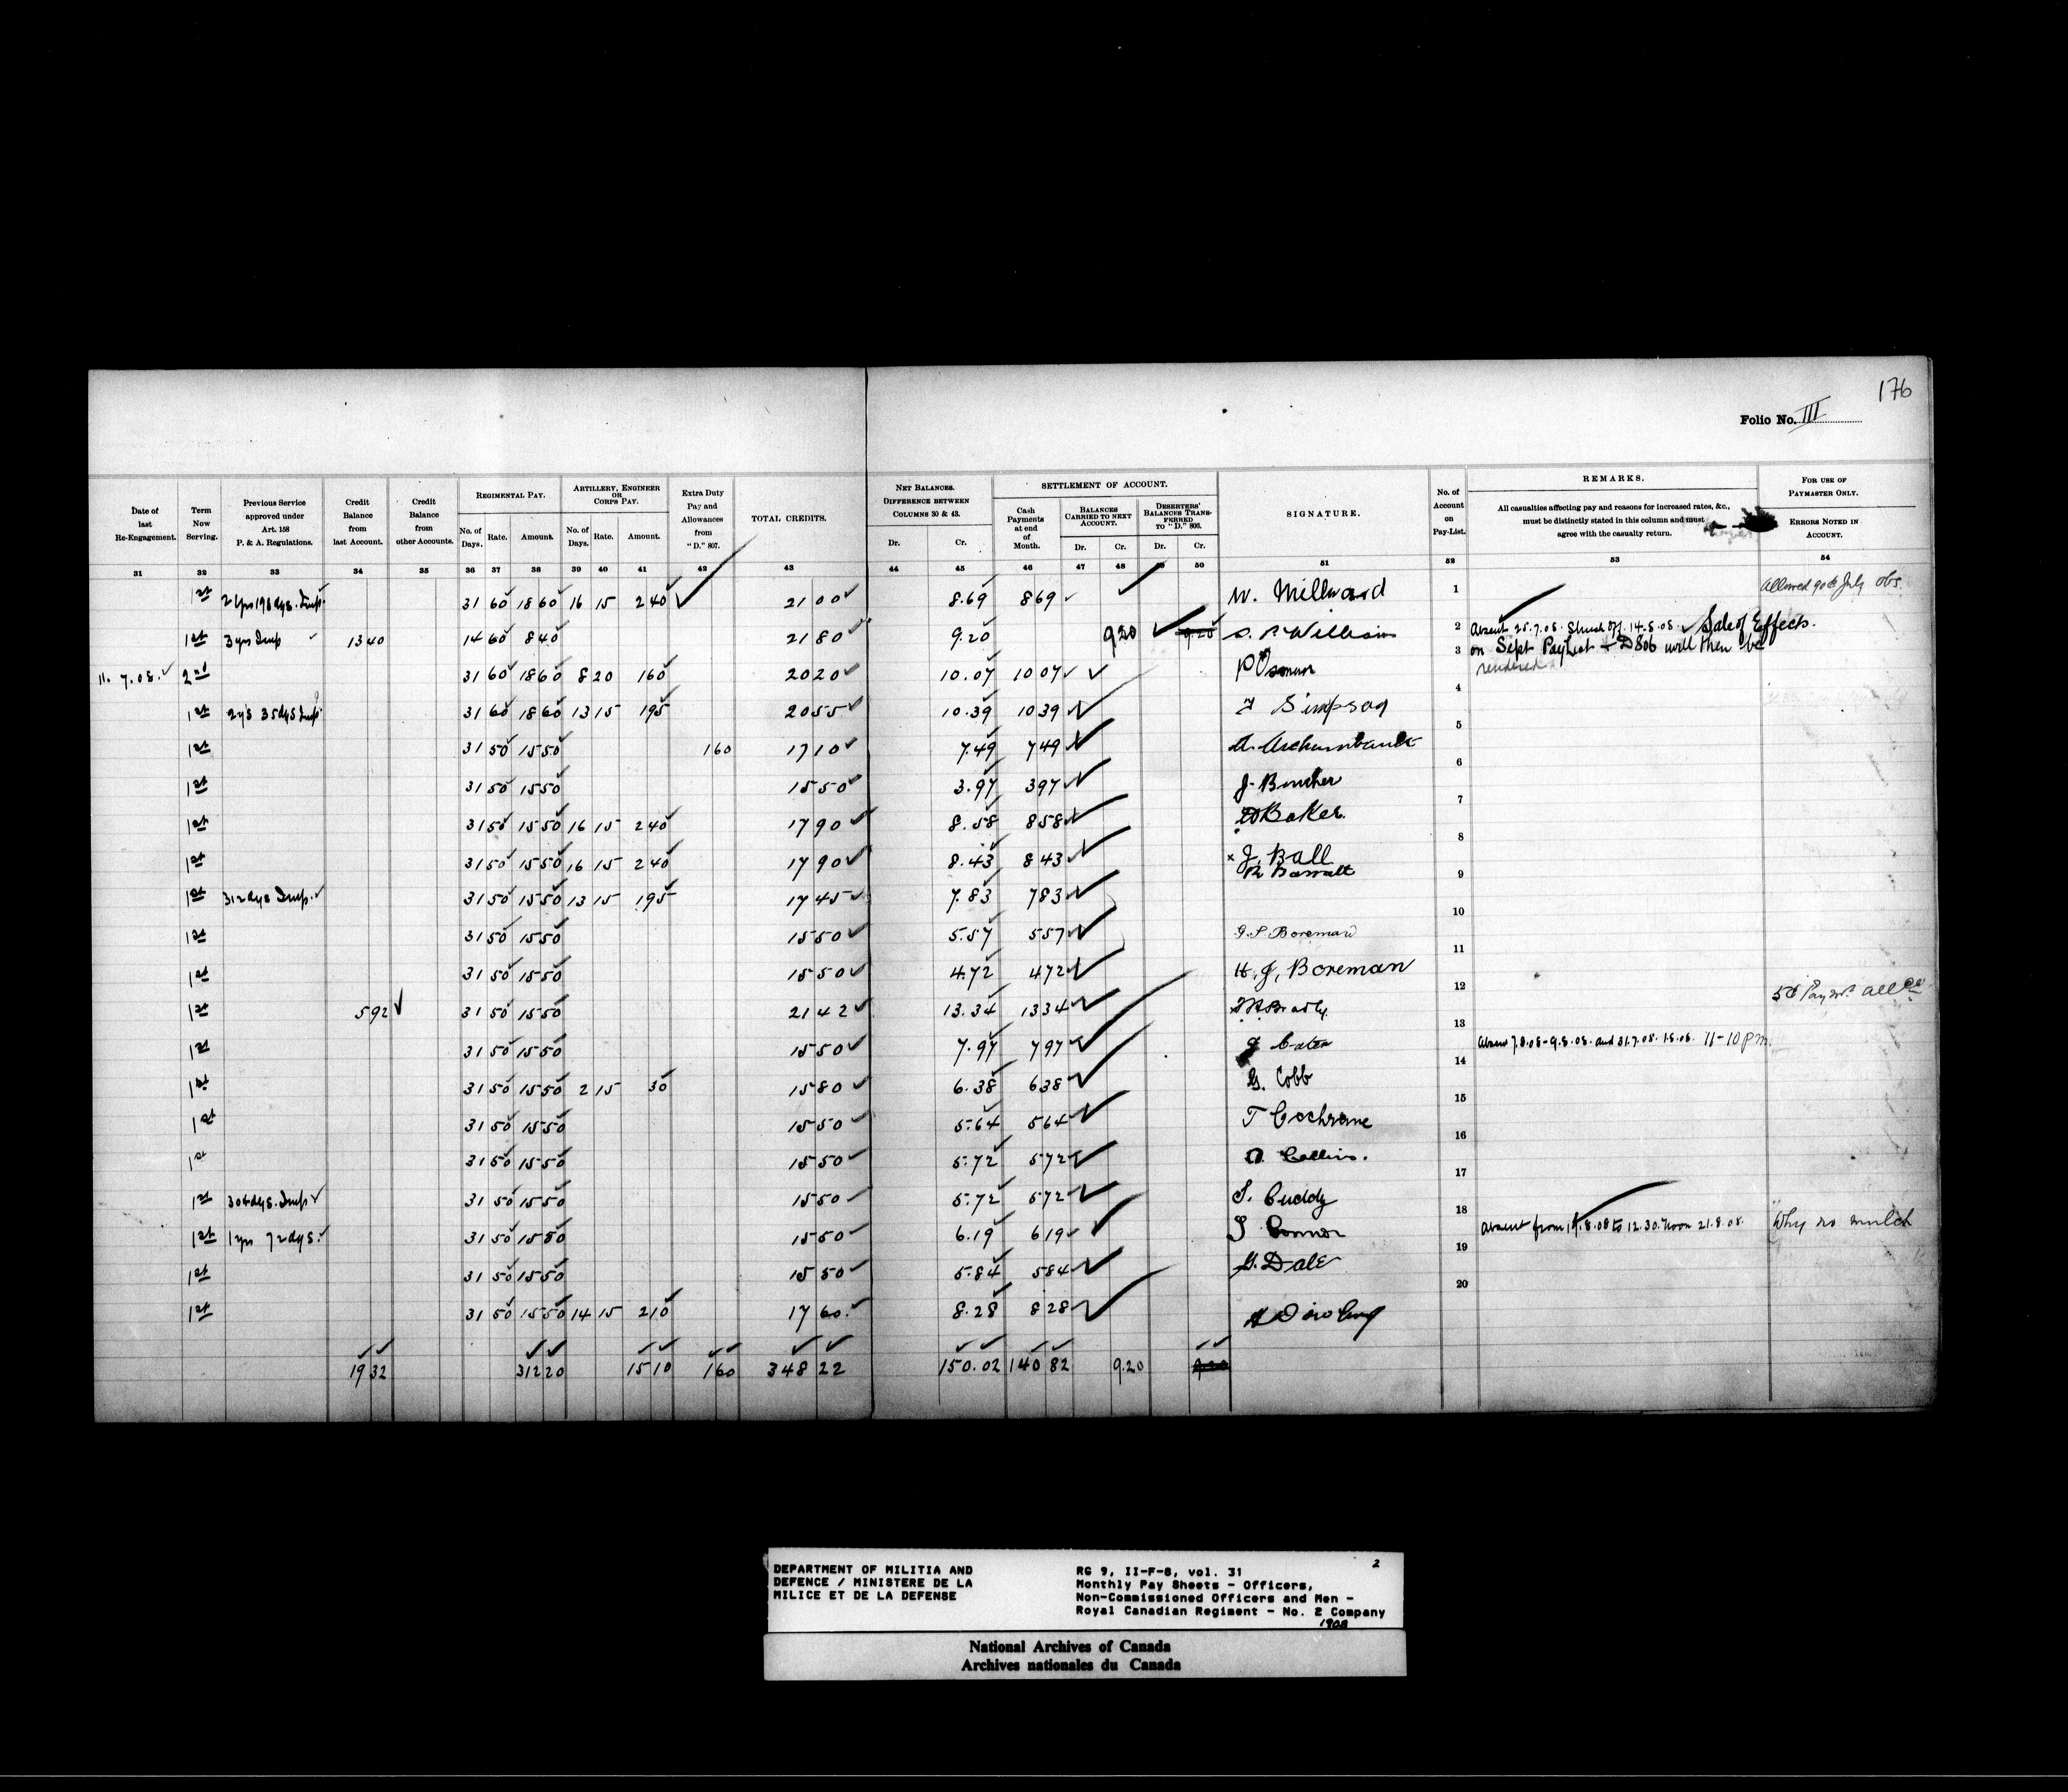 176
Folio No. III
Date of last Re-Engagement.
Term Now Serving.
Previous Service approved under Art. 158 P. & A. Regulations.
Credit Balance from last Account.
Credit Balance from other Accounts.
REGIMENTAL PAY.
No. of Days. Rate. Amount.
ARTILLERY, ENGINEER OR CORPS PAY.
No. of Days. Rate. Amount.
Extra Duty Pay and Allowances from "D." 807.
TOTAL CREDITS.
NET BALANCES. DIFFERENCE BETWEEN COLUMNS 30 & 43.
Dr. Cr.
SETTLEMENT OF ACCOUNT.
Cash Payments at end of Month.
BALANCES CARRIED TO NEXT ACCOUNT.
Dr. Cr.
DESERTERS' BALANCES TRANSFERRED TO "D." 806.
Dr. Cr.
SIGNATURE.
No. of Account on Pay-List.
REMARKS.
All casualties affecting pay and reasons for increased rates, &c., must be distinctly stated in this column and must agree with the casualty return.
FOR USE OF PAYMASTER ONLY.
ERRORS NOTED IN ACCOUNT.
31 32 33 34 35 36 37 38 39 40 41 42 43 44 45 46 47 48 49 50 51 52 53 54
1st 2 yrs 198 dys. Imp. 31 60 18 60 16 15 2 40 21 00 8.69 8 69 W. Millward 1 Allowed 90c July
1st 3 yrs Imp 13 40 14 60 8 40 21 80 9.20 9.20 9.20 2 Absent 25.7.08. Struck off 14-8-08. Sale of Effects.
3 on Sept Paylist + D806 will then be
rendered
11. 7.08. 2nd 31 60 18 60 8 20 1 60 20 20 10.07 10 07 P Osmun
4
1st 2 ys 35 dys Imp 31 60 18 60 13 15 1 95 20 55 10.39 10 39 Simpson
5
1st 31 50 15 50 1 60 17 10 7.49 7 49 A. Archambault
6
1st 31 50 15 50 15 50 3.97 3 97 J. Butcher
7
1st 31 50 15 50 16 15 2 40 17 90 8.58 8 58 Baker.
8
1st 31 50 15 50 16 15 2 40 17 90 8.43 8 43 × J. Ball
9
1st 312 dys Imp. 31 50 15 50 13 15 1 95 17 45 7.83 7 83 Barratt
10
1st 31 50 15 50 15 50 5.57 5 57 G. S. Boreman
11
1st 31 50 15 50 15 50 4.72 4 72 H. J. Boreman
12
1st 5 92 31 50 15 50 21 42 13.34 13 34
13
1st 31 50 15 50 15 50 7.97 7 97 Absent 7.8.08-9.8.08. and 31.7.08. 1.8.08. 11-10 pm.
14
1st 31 50 15 50 2 15 30 15 80 6.38 6 38 G. Cobb
15
1st 31 50 15 50 15 50 5.64 5 64 T Cochrane
16
1st 31 50 15 50 15 50 5.72 5 72 Collins.
17
1st 304 dys. Imp 31 50 15 50 15 50 5.72 5 72 Cuddy
18
1st 1 yrs 72 dys. 31 50 15 50 15 50 6.19 6 19 Connor Absent from 19.8.08 to 12.30. noon 21.8.08. Why no mulct
19
1st 31 50 15 50 15 50 5.84 5 84 G. Dale
20
1st 31 50 15 50 14 15 2 10 17 60. 8.28 8 28 Dowling
19 32 312 20 15 10 1 60 348 22 150.02 140 82 9.20 9.20
2
DEPARTMENT OF MILITIA AND
DEFENCE / MINISTERE DE LA
MILICE ET DE LA DEFENSE
RG 9, II-F-8, vol. 31
Monthly Pay Sheets - Officers,
Non-Commissioned Officers and Men -
Royal Canadian Regiment - No. 2 Company
1908
National Archives of Canada
Archives nationales du Canada